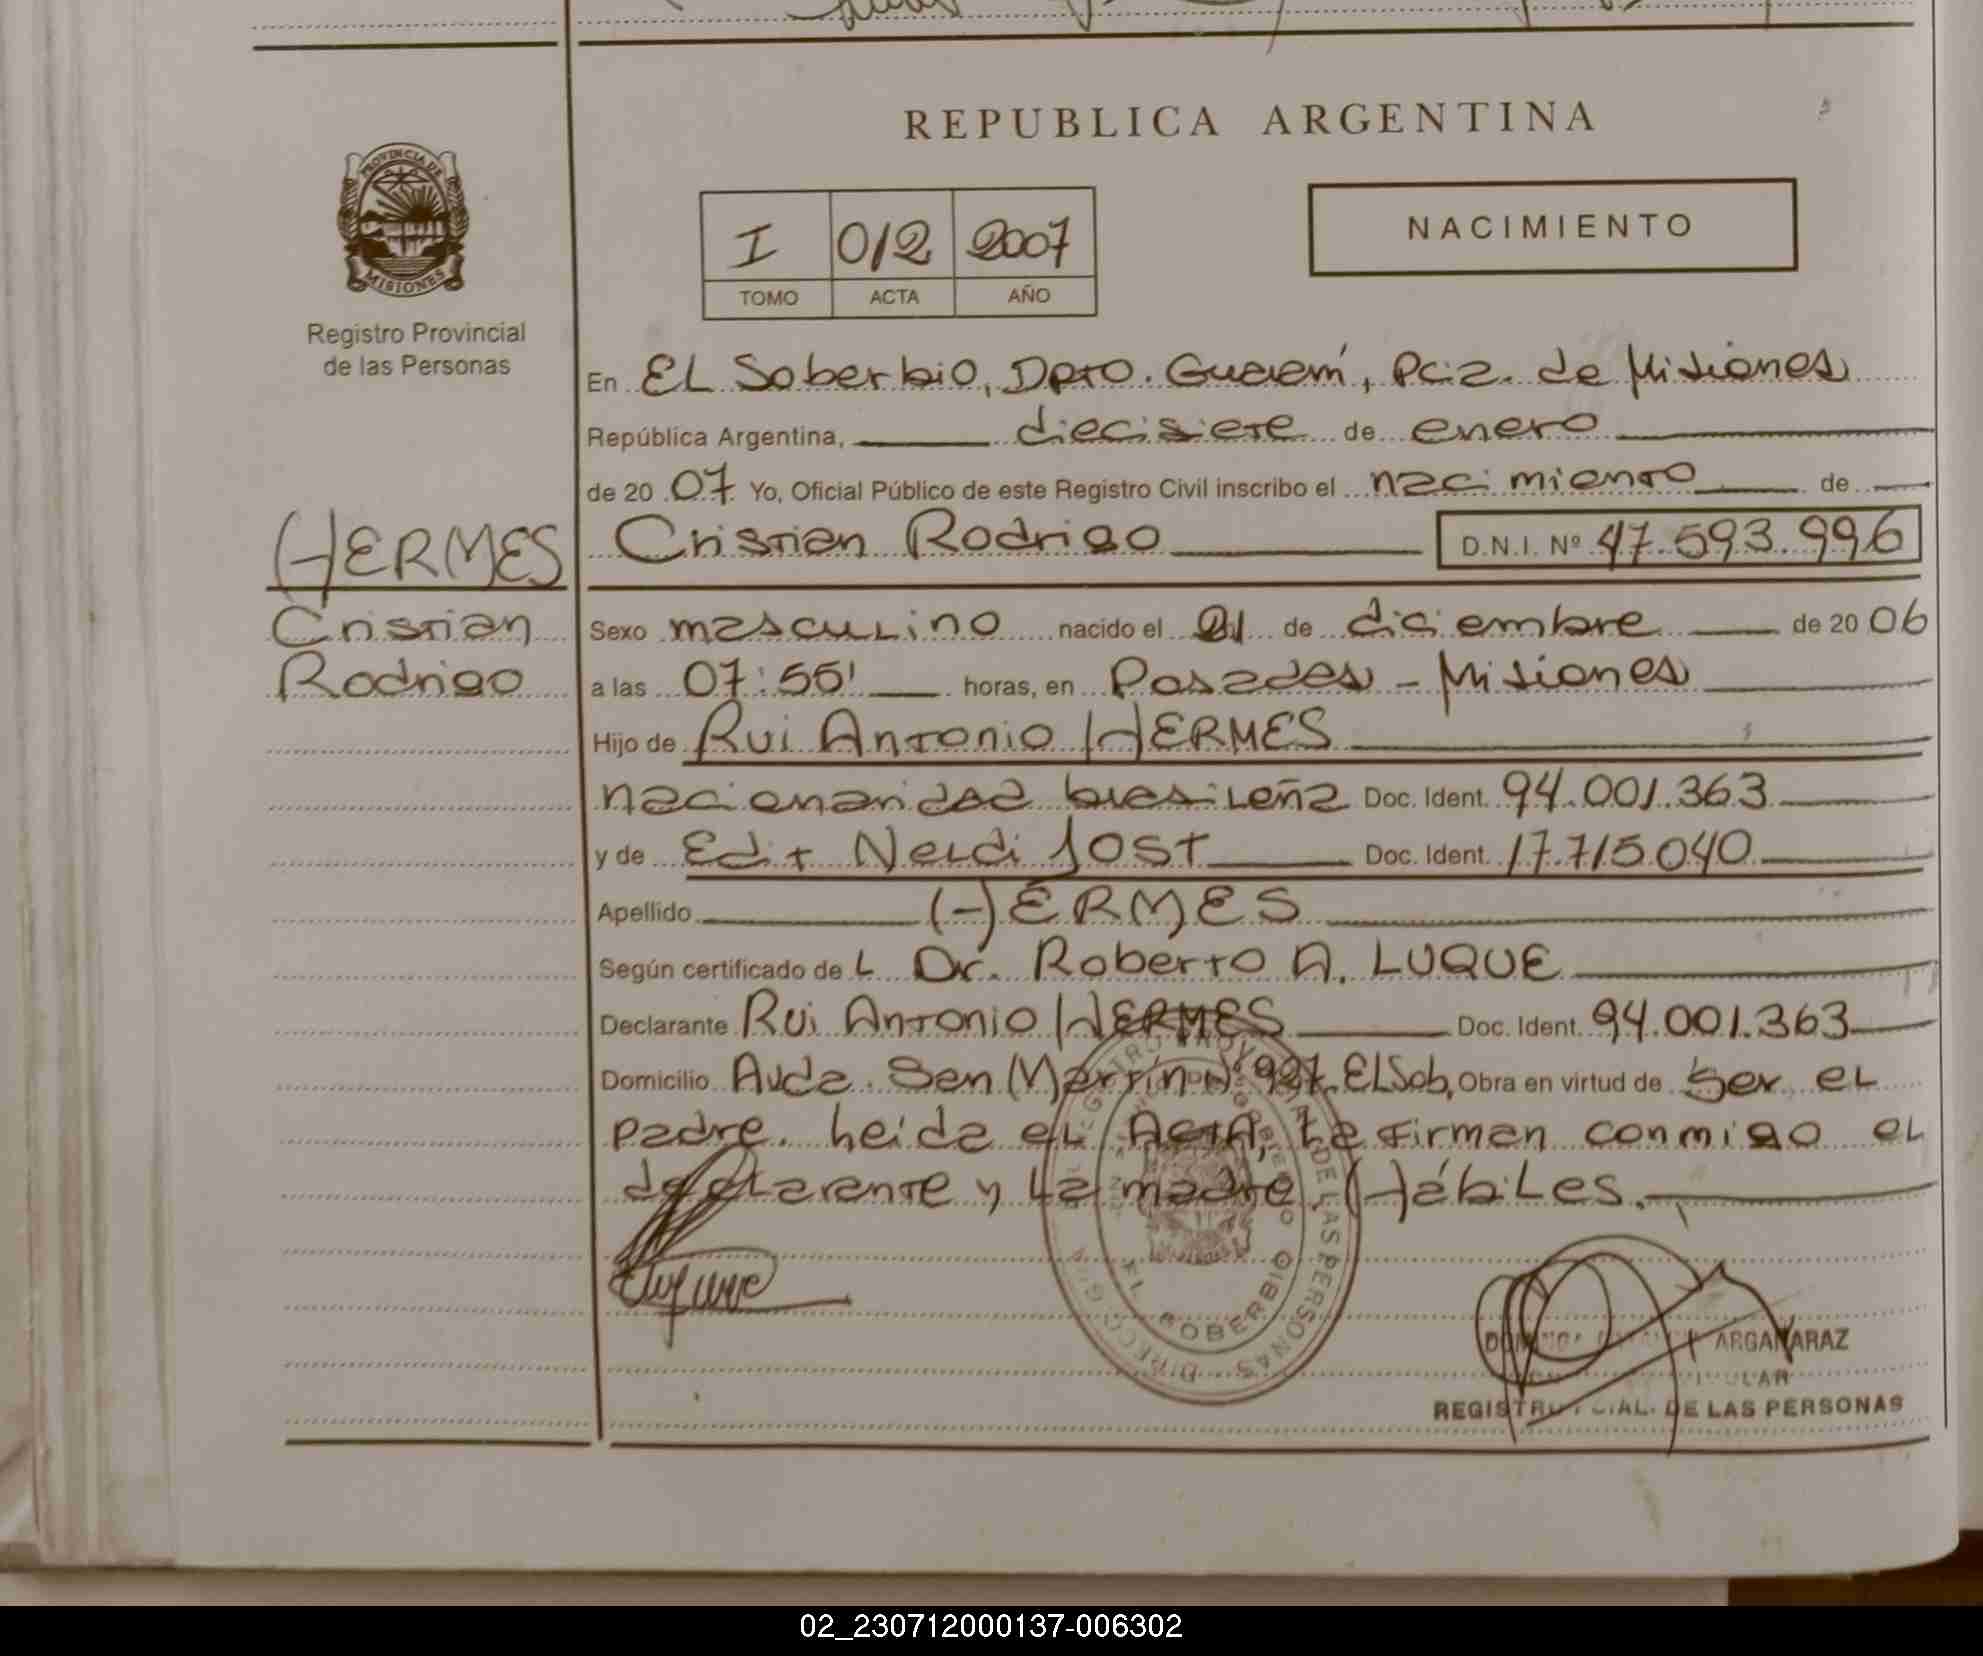 REPUBLICA ARGENTINA
PROVINCIA DE
MISIONES
Registro Provincial
de las Personas
I 012 2007
TOMO ACTA AÑO
NACIMIENTO
En EL Soberbio, Dpto. Guaraní, Pcia. de Misiones
República Argentina, diecisiete de enero
de 20 07 Yo, Oficial Público de este Registro Civil inscribo el nacimiento de
HERMES
Cristian
Rodrigo
Cristian Rodrigo D.N.I. Nº 47.593.996
Sexo masculino nacido el 21 de diciembre de 20 06
a las 07:55' horas, en Posadas - Misiones
Hijo de Rui Antonio HERMES
nacionalidad brasileña Doc. Ident. 94.001.363
y de Edit Nerdi JOST Doc. Ident. 17.715.040
Apellido HERMES
Según certificado de L Dr. Roberto A. LUQUE
Declarante Rui Antonio HERMES Doc. Ident. 94.001.363
Domicilio Avda. San Martín Nº 927. EL Sob, Obra en virtud de ser el
padre. Leída el ActA, La firman conmigo el
declarante y La madre, Hábiles.
DE LAS PERSONAS
EL SOBERBIO
ARGAÑARAZ
REGISTRO DE LAS PERSONAS
02_230712000137-006302